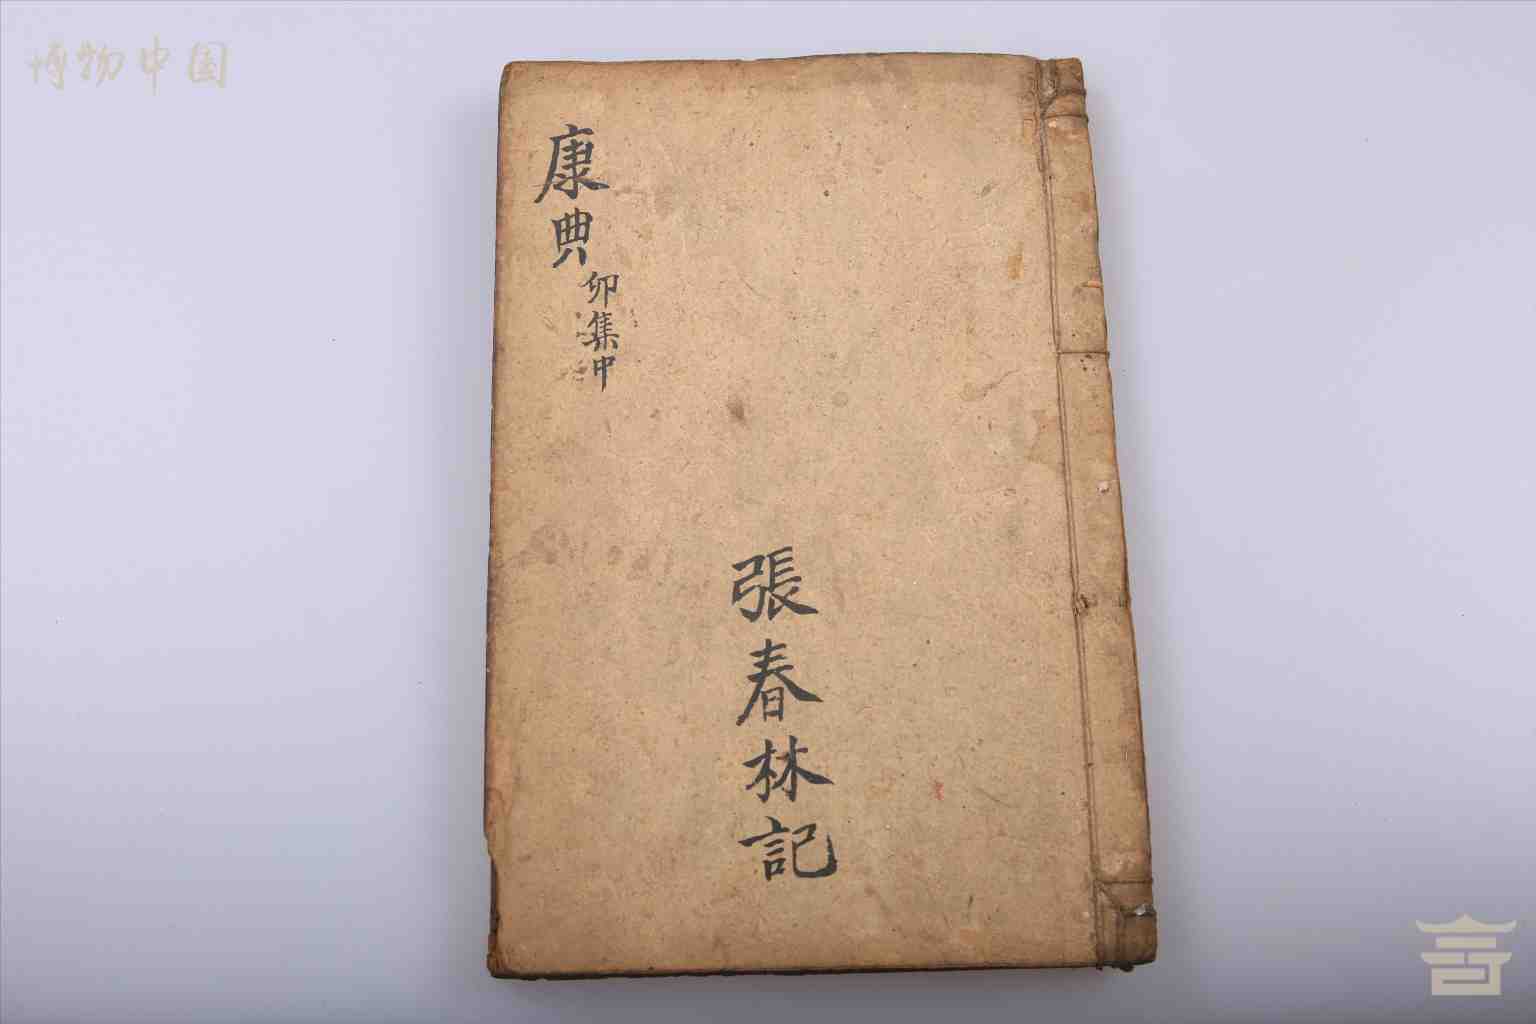 博物中国
康典
卯集中
張春林記